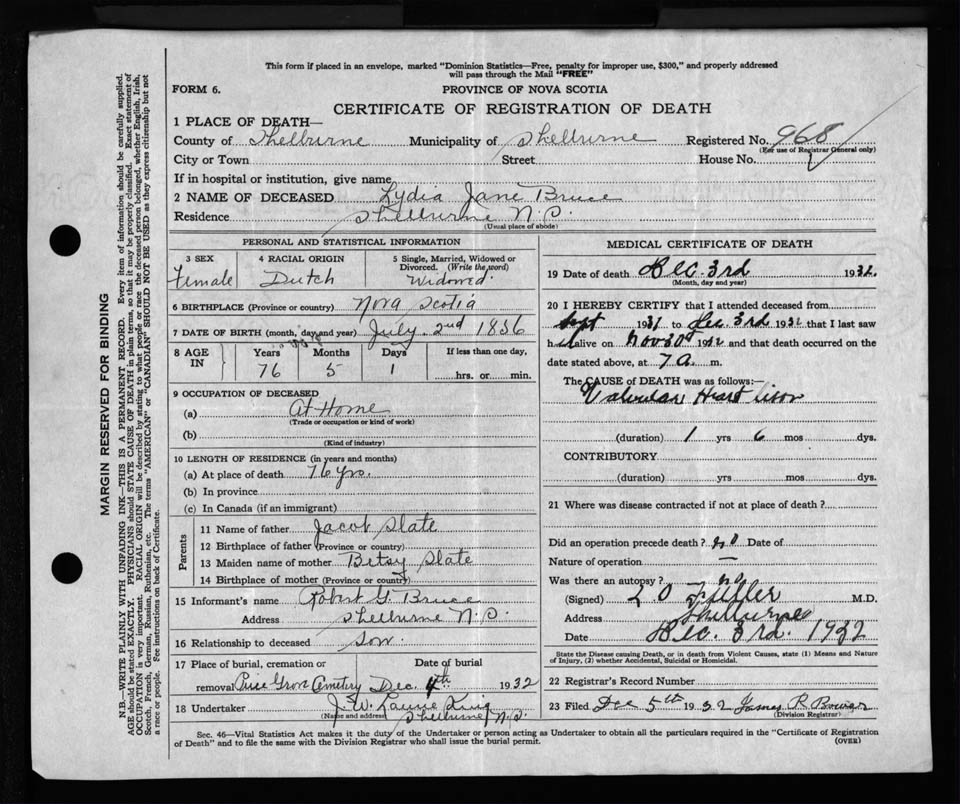 This form if placed in an envelope, marked "Dominion Statistics—Free, penalty for improper use, $300," and properly addressed
will pass through the Mail "FREE"
FORM 6. PROVINCE OF NOVA SCOTIA
CERTIFICATE OF REGISTRATION OF DEATH
1 PLACE OF DEATH—
County of Shelburne Municipality of Shelburne Registered No. 968
(For use of Registrar General only)
City or Town Street House No.
If in hospital or institution, give name
2 NAME OF DECEASED Lydia Jane Bruce
Residence Shelburne N.S.
(Usual place of abode)
PERSONAL AND STATISTICAL INFORMATION
3 SEX 4 RACIAL ORIGIN 5 Single, Married, Widowed or
Divorced. (Write the word)
Female Dutch Widowed.
6 BIRTHPLACE (Province or country) Nova Scotia
7 DATE OF BIRTH (month, day and year) July 2nd 1856
8 AGE IN Years Months Days If less than one day,
76 5 1 hrs. or min.
9 OCCUPATION OF DECEASED
(a) At Home
(Trade or occupation or kind of work)
(b)
(Kind of industry)
10 LENGTH OF RESIDENCE (in years and months)
(a) At place of death 76 yrs.
(b) In province
(c) In Canada (if an immigrant)
Parents
11 Name of father Jacob Slate
12 Birthplace of father (Province or country)
13 Maiden name of mother Betsy Slate
14 Birthplace of mother (Province or country)
15 Informant's name Robert G. Bruce
Address Shelburne N.S.
16 Relationship to deceased Son.
17 Place of burial, cremation or Date of burial
removal Pine Grove Cemetery Dec. 4th 1932
18 Undertaker J. W. King
(Name and address) Shelburne, N.S.
MEDICAL CERTIFICATE OF DEATH
19 Date of death Dec. 3rd 1932
(Month, day and year)
20 I HEREBY CERTIFY that I attended deceased from
Sept 1931 to Dec. 3rd 1932 that I last saw
her alive on Nov 30 1932 and that death occurred on the
date stated above, at 7 a. m.
The CAUSE OF DEATH was as follows:—
Valvular Heart
(duration) 1 yrs 6 mos dys.
CONTRIBUTORY
(duration) yrs mos dys.
21 Where was disease contracted if not at place of death?
Did an operation precede death? no Date of
Nature of operation —
Was there an autopsy? no
(Signed) L. O. Fuller M.D.
Address Shelburne
Date Dec. 3rd. 1932
State the Disease causing Death, or in death from Violent Causes, state (1) Means and Nature
of Injury, (2) whether Accidental, Suicidal or Homicidal.
22 Registrar's Record Number
23 Filed Dec 5th 1932 James R
(Division Registrar)
Sec. 46—Vital Statistics Act makes it the duty of the Undertaker or person acting as Undertaker to obtain all the particulars required in the "Certificate of Registration
of Death" and to file the same with the Division Registrar who shall issue the burial permit. (OVER)
MARGIN RESERVED FOR BINDING
N.B.—WRITE PLAINLY WITH UNFADING INK—THIS IS A PERMANENT RECORD. Every item of information should be carefully supplied.
AGE should be stated EXACTLY. PHYSICIANS should STATE CAUSE OF DEATH in plain terms, so that it may be properly classified. Exact statement of
OCCUPATION is very important. RACIAL ORIGIN will be described by stating to what people or race the deceased person belonged, whether English, Irish,
Scotch, French, German, Russian, Ruthenian, etc. The terms "AMERICAN" or "CANADIAN" SHOULD NOT BE USED as they express citizenship but not
a race or people. Fee instructions on back of Certificate.